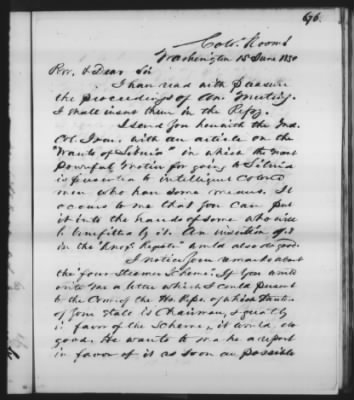 676.
Col. Rooms
Washington 15 June 1850
Rev. & Dear Sir
I have read with pleasure
the proceedings of the Meeting.
I shall insert them in the Repos.
I send you herewith the
with an article on the
"Wants of Liberia" in which the most
powerful motive for going to Liberia
is presented to intelligent colored
men who have some means. It
occurs to me that you can put
it into the hands of some who will
be benefitted by it. An insertion of it
in the Register" would also do good.
I notice your remarks about
the four Steamer Scheme: If you would
write me a letter which I could present
to the Com. of the Ho. Reps. of which
of your State is Chairman, & greatly
in favor of the Scheme, it would do
good. He wants to make a report
in favor of it as soon as possible